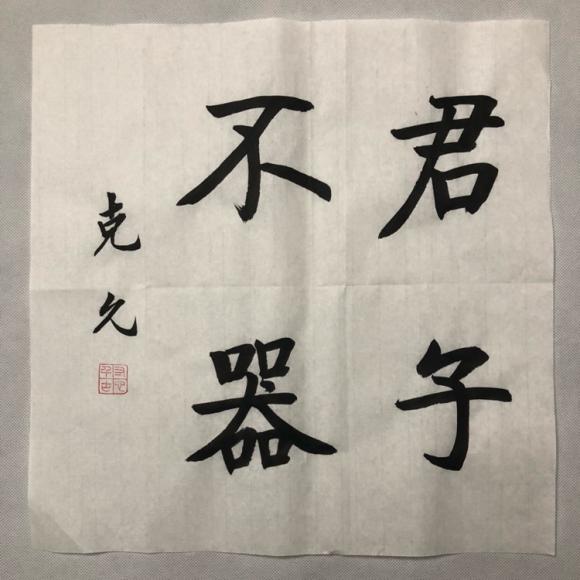 君子
不器
克久